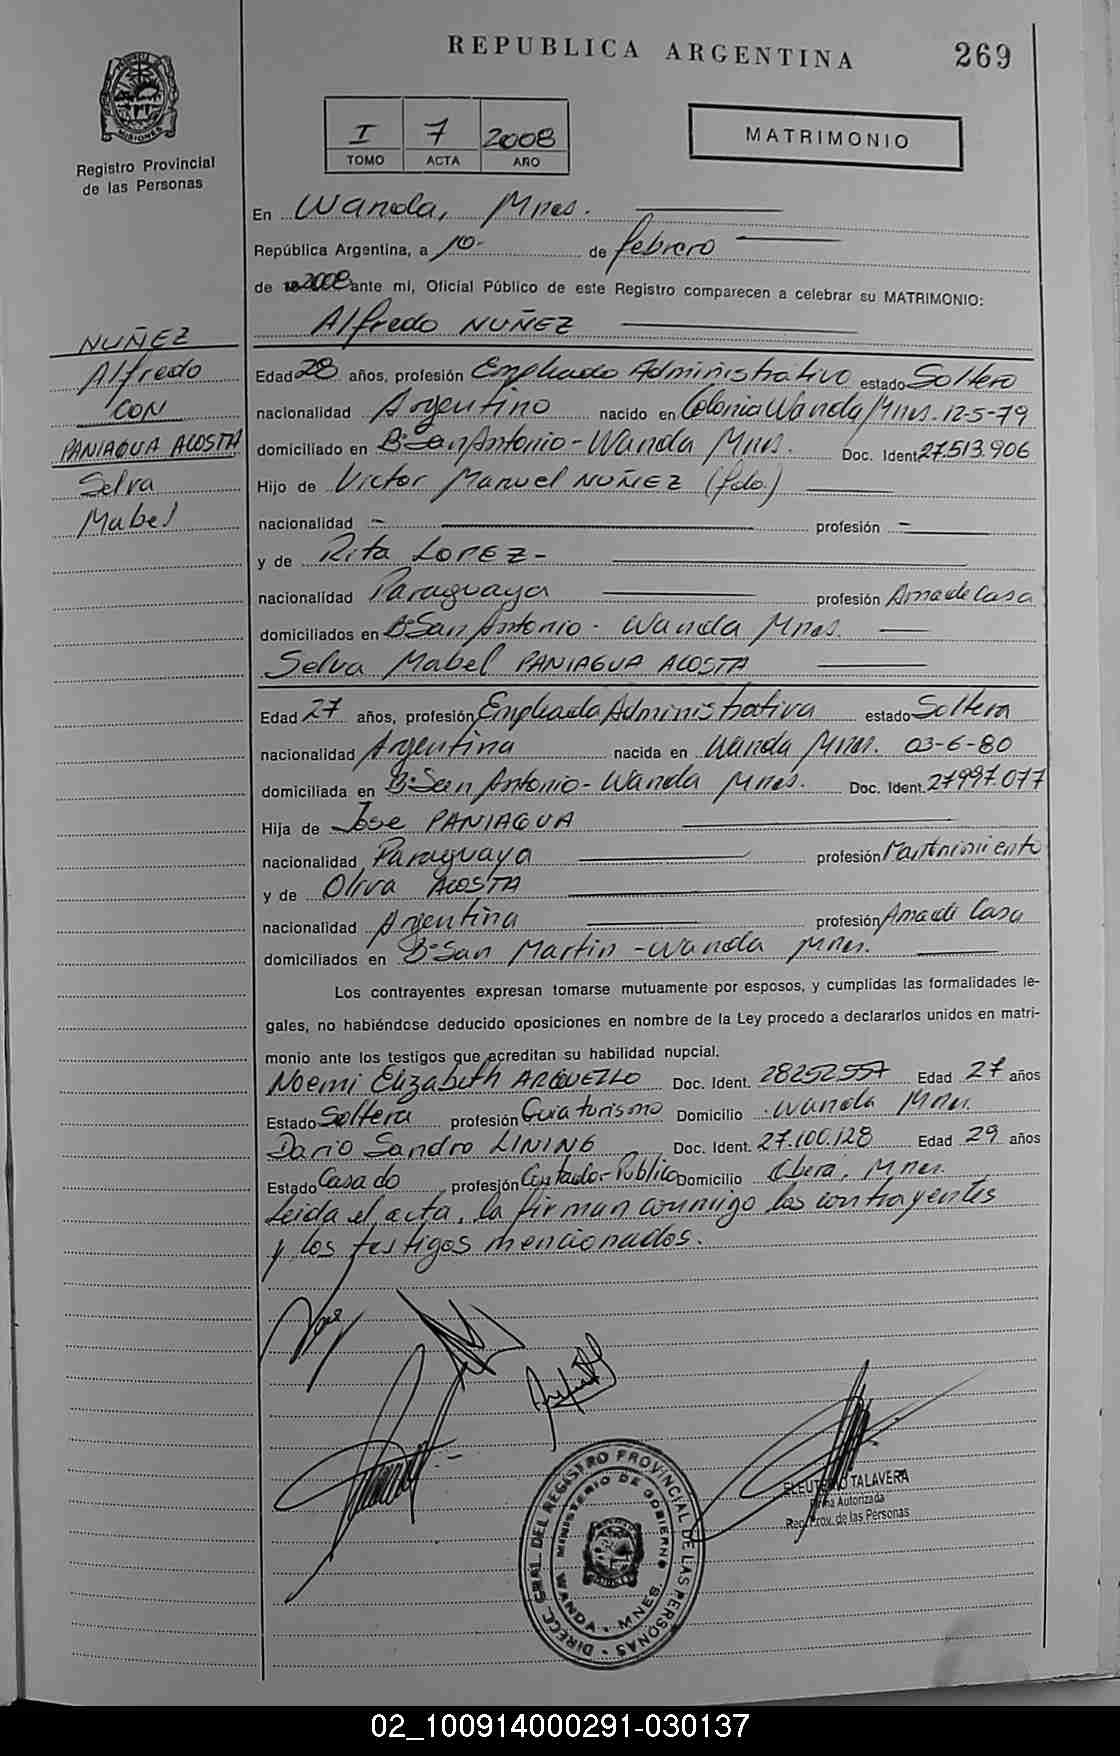 REPUBLICA ARGENTINA 269
Registro Provincial
de las Personas
I 7 2008
TOMO ACTA AÑO
MATRIMONIO
En Wanda, Mnes.
República Argentina, a 10- de febrero
de 2008 ante mi, Oficial Público de este Registro comparecen a celebrar su MATRIMONIO:
Alfredo NUÑEZ
NUÑEZ
Alfredo
CON
PANIAGUA ACOSTA
Selva
Mabel
Edad 28 años, profesión Empleado Administrativo estado Soltero
nacionalidad Argentino nacido en Colonia Wanda Mnes. 12-5-79
domiciliado en B° San Antonio - Wanda Mnes. Doc. Ident. 27.513.906
Hijo de Victor Manuel NUÑEZ (fdo.)
nacionalidad - profesión -
y de Rita LOPEZ-
nacionalidad Paraguaya profesión Ama de Casa
domiciliados en B° San Antonio - Wanda Mnes.
Selva Mabel PANIAGUA ACOSTA
Edad 27 años, profesión Empleada Administrativa estado Soltera
nacionalidad Argentina nacida en Wanda Mnes. 03-6-80
domiciliada en B° San Antonio - Wanda Mnes. Doc. Ident. 27997.077
Hija de Jose PANIAGUA
nacionalidad Paraguaya profesión Mantenimiento
y de Oliva ACOSTA
nacionalidad Argentina profesión Ama de Casa
domiciliados en B° San Martin - Wanda Mnes.
Los contrayentes expresan tomarse mutuamente por esposos, y cumplidas las formalidades le-
gales, no habiéndose deducido oposiciones en nombre de la Ley procedo a declararlos unidos en matri-
monio ante los testigos que acreditan su habilidad nupcial.
Noemi Elizabeth ARGUELLO Doc. Ident. 28252557 Edad 27 años
Estado Soltera profesión Guia turismo Domicilio Wanda Mnes.
Dario Sandro LINING Doc. Ident. 27.100.128 Edad 29 años
Estado Casado profesión Contador-Publico Domicilio Obera, Mnes.
Leida el acta, la firman conmigo los contrayentes
y los testigos mencionados.
ELEUTERIO TALAVERA
Firma Autorizada
Reg. Prov. de las Personas
DIRECC. GRAL. DEL REGISTRO PROVINCIAL DE LAS PERSONAS
MINISTERIO DE GOBIERNO
WANDA - MNES.
02_100914000291-030137